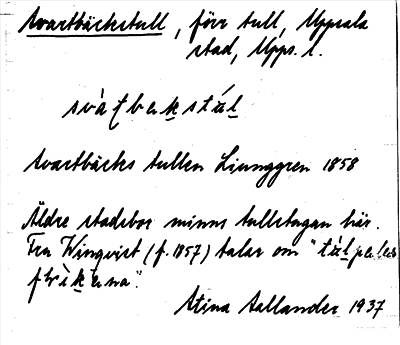 Svartbäckstull, förr tull, Uppsala
stad, Upps. l.
svàʈbɛkstúl
Svartbäcks tullen Ljunggren 1858
Äldre stadsbor minns tullstugan här.
Fru Winqvist (f. 1857) talar om "
Stina Sallander 1937